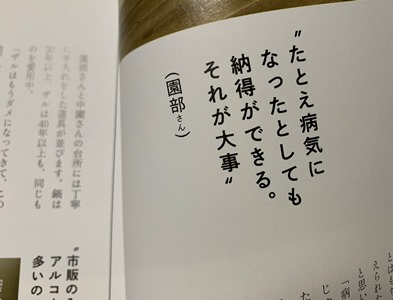 〝たとえ病気に
なったとしても
納得ができる。
それが大事〟
（園部さん）
えられた
と思い
「病
じゃ
た
園部さんと中園さんの台所には丁寧
に手入れをした道具が並びます。鍋は
30年以上、ザルは40年以上も、同じも
のを愛用中。
「ザルはもうダメになってきて、この
〝市販の
アルコ
多いの